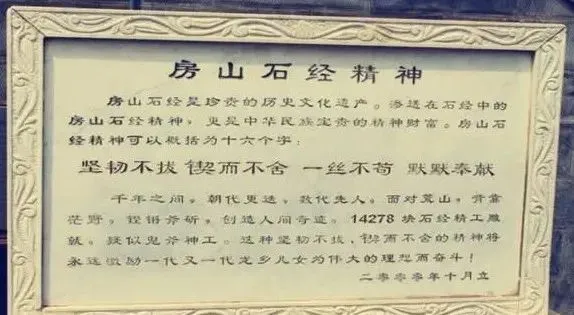 房山石经精神
房山石经是珍贵的历史文化遗产。渗透在石经中的
房山石经精神，更是中华民族宝贵的精神财富。房山石
经精神可以概括为十六个字：
坚韧不拔 锲而不舍 一丝不苟 默默奉献
千年之间，朝代更迭，数代先人。面对荒山，背靠
茫野，铿锵斧斫，创造人间奇迹。14278 块石经精工雕
就。疑似鬼斧神工。这种坚韧不拔，锲而不舍的精神将
永远激励一代又一代龙乡儿女为伟大的理想而奋斗！
二零零零年十月立